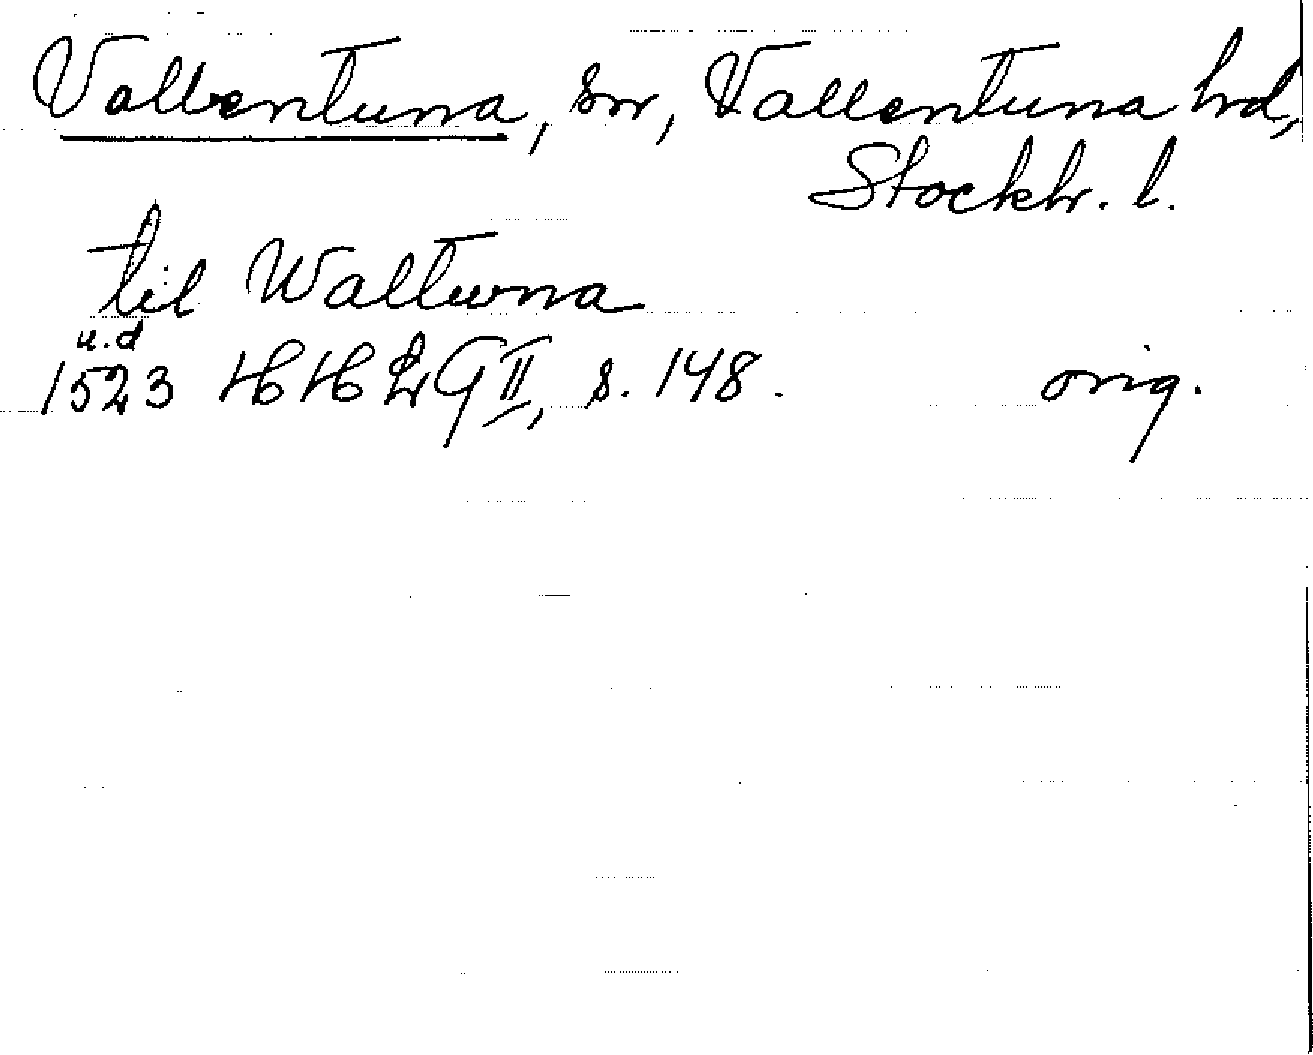 Vallentuna, sn, Vallentuna hd,
Stockh. l.
til Walturna
u.d
1523 HH LG II, s. 148. orig.